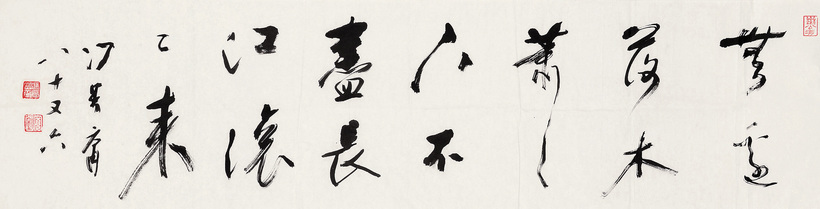 無邊
落木
蕭〻
下不
盡長
江滾
〻來
沙曼翁
八十又六